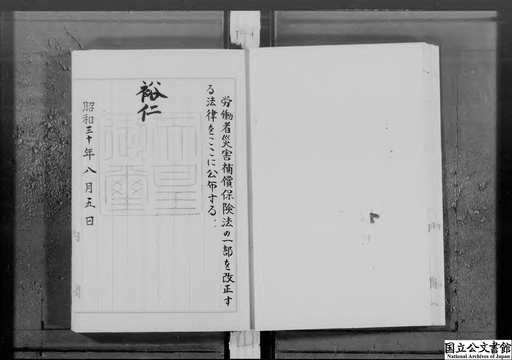 労働者災害補償保険法の一部を改正す
る法律をここに公布する。
裕仁
天皇
御璽
昭和三十年八月五日
国立公文書館
National Archives of Japan